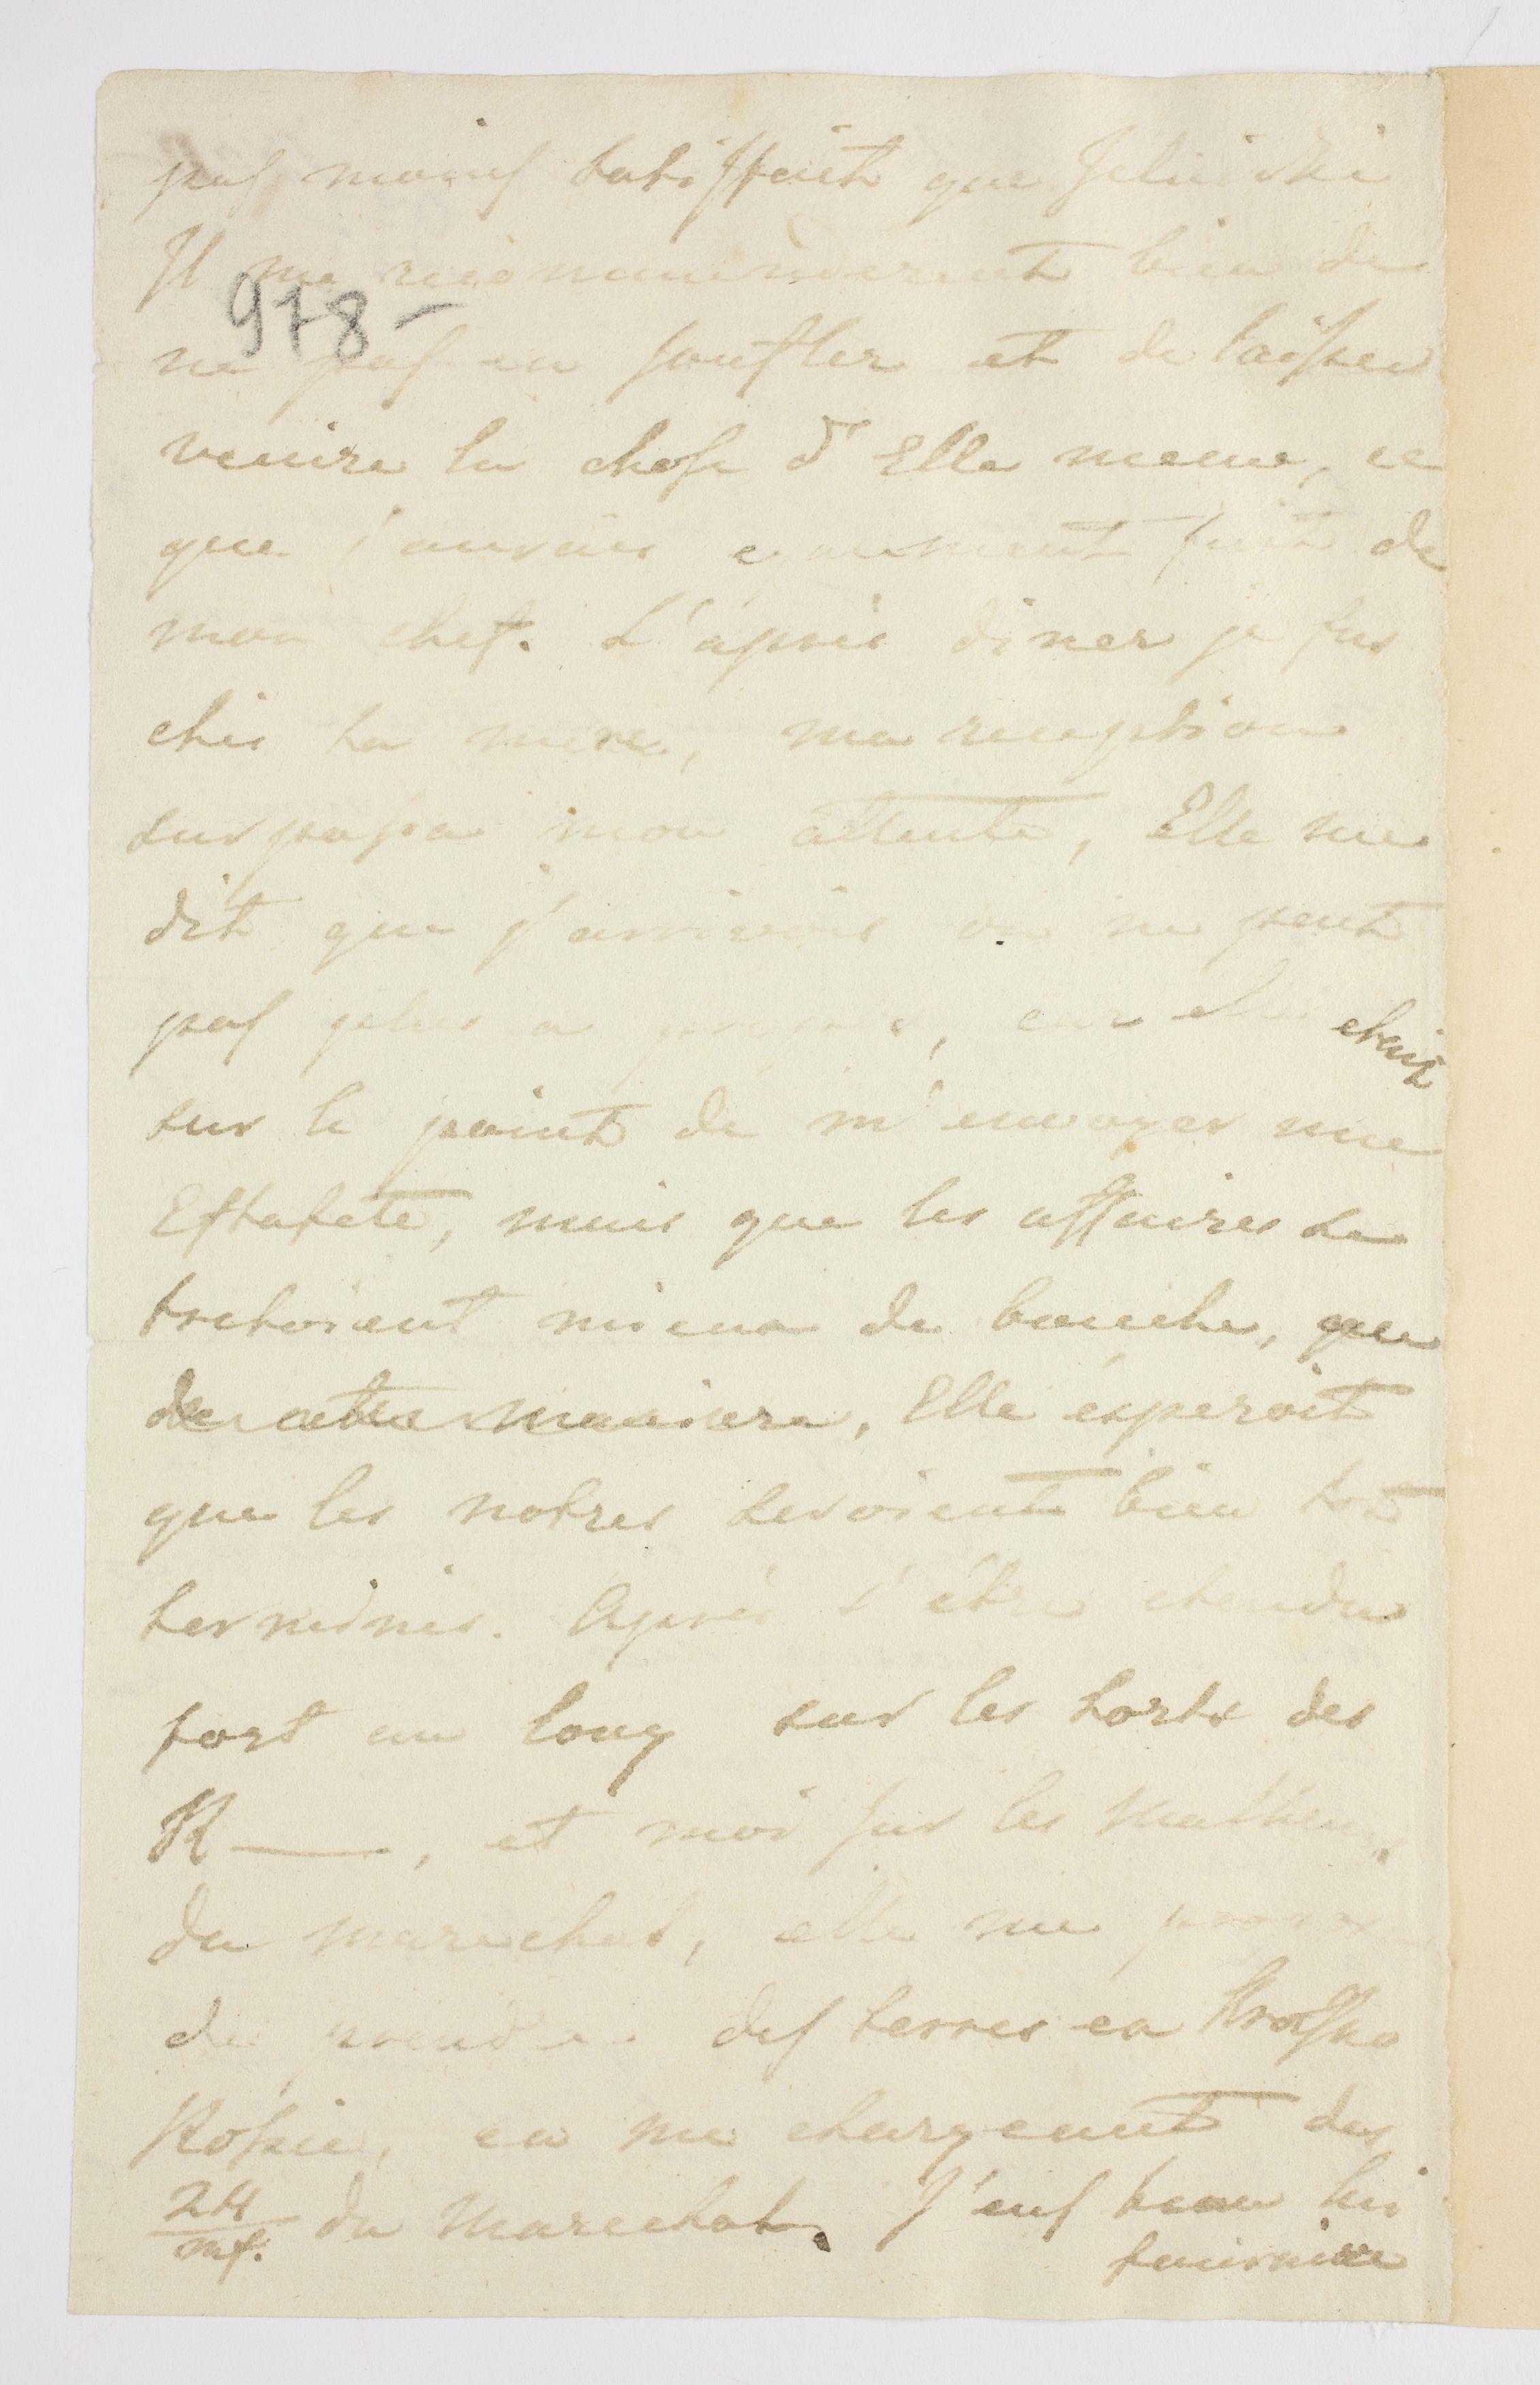 pas moins satisfait que Jelinski
Il me recommenderent bien de
978-
ne pas en soufler et de laisser
venire la chose d'Elle meme, ce
que j'aurais egalement fait de
mon chef. L'après diner je fus
chés la mere, ma reception
surpassa mon attente, Elle me
dit que j'arrivois on ne peut
pas plus a propos, car elle etait
sur le point de m'envoyer une
Estafete, mais que les affaires se
tretoient mieux de bouche, que
de maniere, Elle esperoit
que les notres seroient bien tot
terminés. Après s'être etendu
fort au long sur les torts des
R——, et moi sur les malheurs
du marechal, elle me
de prendre des terres en
Rossie, en me chargeant des
24/mf. du Marechal. J'eus beau lui
fournire